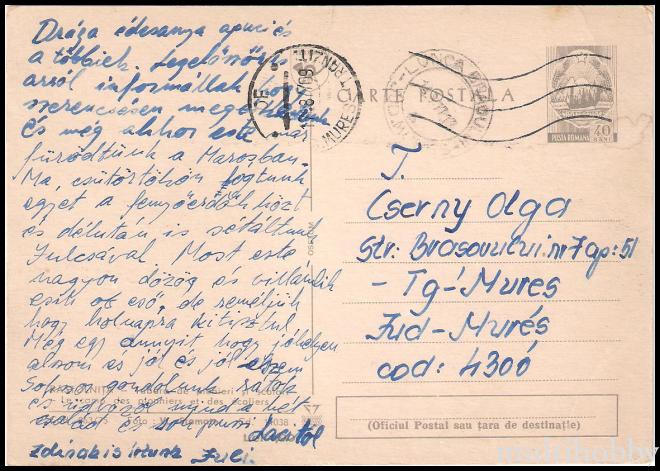 Drága édesanya apuci és
a többiek. Legelőször is
arról informállak hogy
szerencsésen megérkeztünk
és még akkor este már
fürödtünk a Marosban.
Ma, csütörtökön fogtunk
egyet a fenyőerdők közt
és délután is sétáltunk
Julcsával. Most este
nagyon dözög és villámlik
esik az eső, de reméljük
hogy holnapra kitisztul.
Még egy annyit hogy jóhelyen
alszom és jól és jól eszem
Sokszor gondolunk rátok
és mind a hét
család és
Laci tól
Juci
CARTE POSTALA
POSTA ROMANA
40
BANI
TRANZIT
MURES
LUNCA BRADULUI
T.
Cserny Olga
Str: Brasovului nr 7 ap: 51
- Tg-Mures
Jud - Murés
cod: 4300
Le camp des pionniers et des écoliers
(Oficiul Postal sau țara de destinație)
multhobby